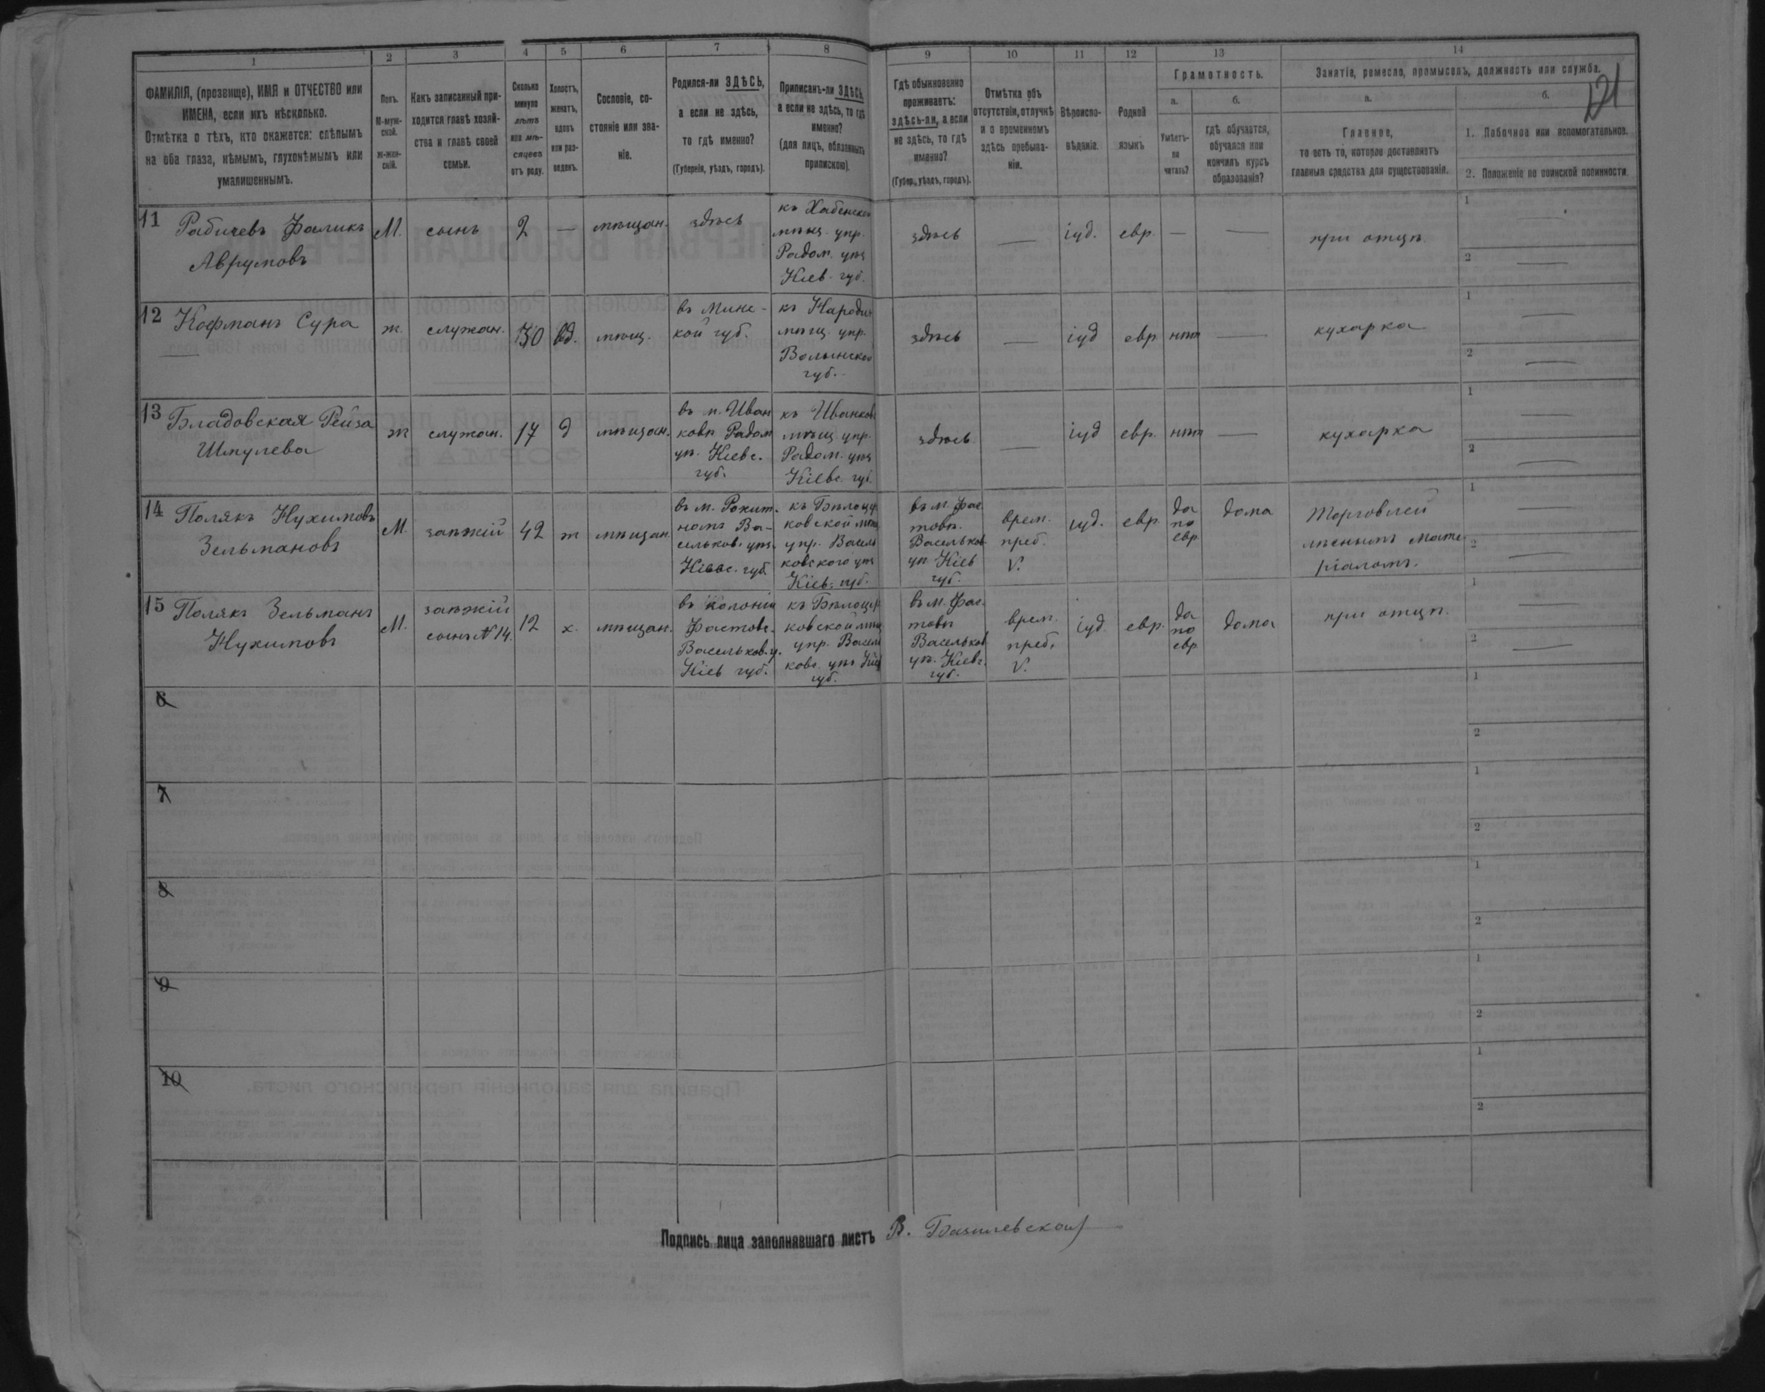 1 2 3 4 5 6 7 8 9 10 11 12 13 14
ФАМИЛІЯ, (прозвище), ИМЯ и ОТЧЕСТВО или
ИМЕНА, если ихъ нѣсколько.
Отмѣтка о тѣхъ, кто окажется: слѣпымъ
на оба глаза, нѣмымъ, глухонѣмымъ или
умалишеннымъ.
Полъ.
М-муж-
ской.
Ж-жен-
скій.
Какъ записанный при-
ходится главѣ хозяй-
ства и главѣ своей
семьи.
Сколько
минуло
лѣтъ
или мѣ-
сяцевъ
отъ роду.
Холостъ,
женатъ,
вдовъ
или раз-
веденъ.
Сословіе, со-
стояніе или зва-
ніе.
Родился-ли ЗДѢСЬ,
а если не здѣсь,
то гдѣ именно?
(Губернія, уѣздъ, городъ).
Приписанъ-ли ЗДѢСЬ,
а если не здѣсь, то гдѣ
именно?
(для лицъ, обязанныхъ
припискою).
Гдѣ обыкновенно
проживаетъ:
здѣсь-ли, а если
не здѣсь, то гдѣ
именно?
(Губер., уѣздъ, городъ).
Отмѣтка объ
отсутствіи, отлучкѣ
и о временномъ
здѣсь пребыва-
ніи.
Вѣроиспо-
вѣданіе.
Родной
языкъ
Грамотность.
а.
Умѣетъ-
ли
читать?
б.
гдѣ обучается,
обучался или
кончилъ курсъ
образованія?
Занятіе, ремесло, промыселъ, должность или служба.
121
а.
Главное,
то есть то, которое доставляетъ
главныя средства для существованія.
б.
1. Побочное или вспомогательное.
2. Положеніе по воинской повинности.
11 Рабичевъ Фаликъ
Аврумовъ
М.
сынъ
2
—
мѣщан.
здѣсь
къ Хабенской
мѣщ. упр.
Радом. уѣз
Кіев. губ.
здѣсь
—
іуд.
евр
—
—
при отцѣ
1 —
2 —
12 Кофманъ Сура
ж.
служан.
вд.
мѣщ.
въ Минс-
кой губ.
къ Народиц
мѣщ. упр.
Волынской
губ.
здѣсь
—
іуд
евр
нѣтъ
—
кухарка
1 —
2 —
13 Бладовская Рейза
Шмулева
ж
служан.
17
д
мѣщан.
въ м. Иван
ковѣ Радом
уѣ. Кіевс.
губ.
къ Иванков
мѣщ упр.
Радом. уѣз
Кіевс. губ.
здѣсь
—
іуд
евр.
нѣтъ
—
кухарка
1 —
2 —
14 Полякъ Нухимовъ
Зельмановъ
М.
заѣжій
42
ж
мѣщан.
въ м. Рокит.
номъ Ва-
сильков. уѣз.
Кіевс. губ
къ Бѣлоцер
ковской мѣщ
упр. Василь
ковского уѣз
Кіев. губ.
въ м. Фас
товѣ.
Васильков
уѣ Кіев
губ.
врем.
преб.
V.
іуд.
евр
да
по
евр
дома
торговлей
лѣснымъ мате
ріаломъ.
1 —
2 —
15 Полякъ Зельманъ
Нухимовъ
М.
заѣжій
сынъ №14.
12
х.
мѣщан.
въ колоніи
Фастовс.
Васильков. у.
Кіев губ.
къ Бѣлоцер
ковской мѣщ
упр. Василь
ковс. уѣз Кіев
губ.
въ м. Фас.
товѣ
Васильков
уѣ. Кіевс.
губ.
врем.
преб.
V.
іуд.
евр.
да
по
евр
дома
при отцѣ.
1 —
2 —
6
1
2
7
1
2
8
1
2
9
1
2
10
1
2
Подпись лица заполнявшаго листъ В. Базилевской